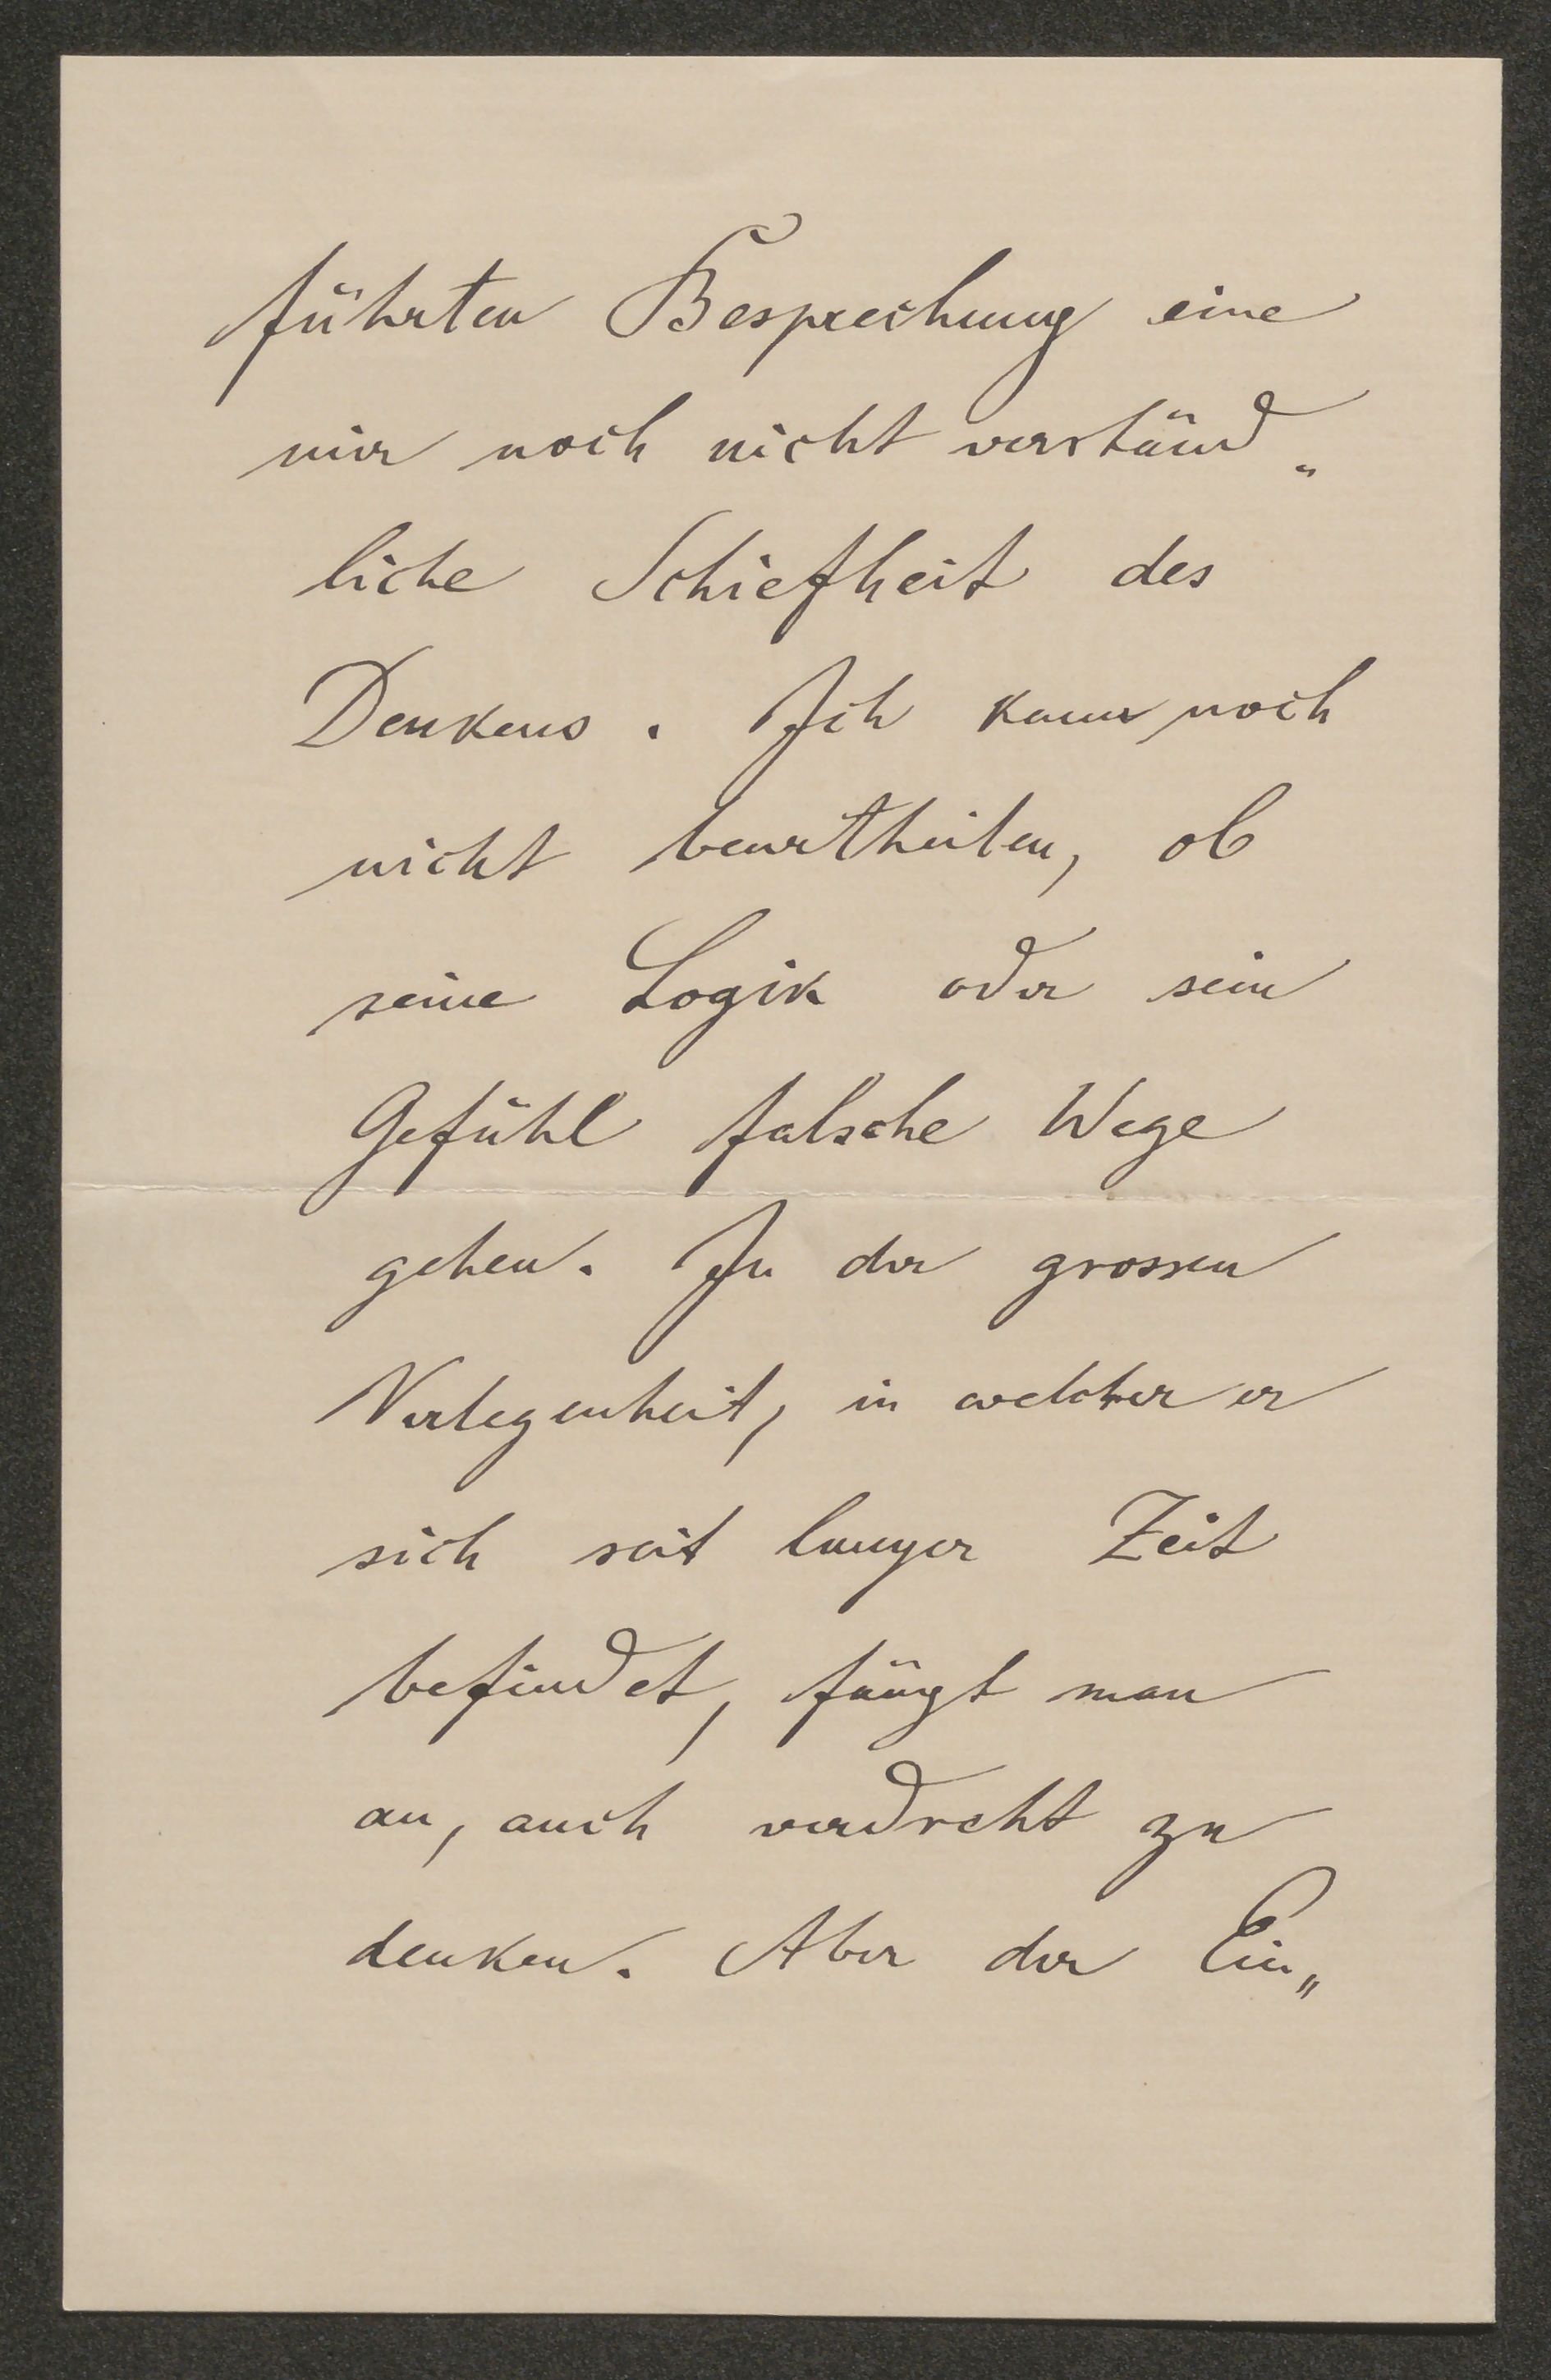 führten Besprechung eine
mir noch nicht verständ„
liche Schiefheit des
Denkens. Ich kann noch
nicht beurtheilen, ob
seine Logik oder sein
Gefühl falsche Wege
gehen. In der grossen
Verlegenheit, in welcher er
sich seit langer Zeit
befindet, fängt man
an, auch verdreht zu
denken. Aber der Ein„